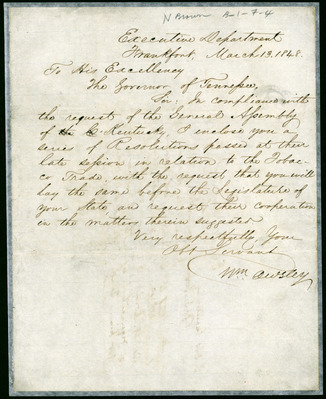 N Brown B-1-7-4
Executive Department
Frankfort, March 13, 1848.
To His Excellency
The Governor of Tennessee,
Sir: In compliance with
the request of the General Assembly
of Kentucky, I enclose you a
series of Resolutions passed at their
late session in relation to the Tobac-
co Trade, with the request that you will
lay the same before the Legislature of
your State and request their cooperation
in the matters therein suggested
Very respectfully, Your
Obt Servant
Wm Owsley